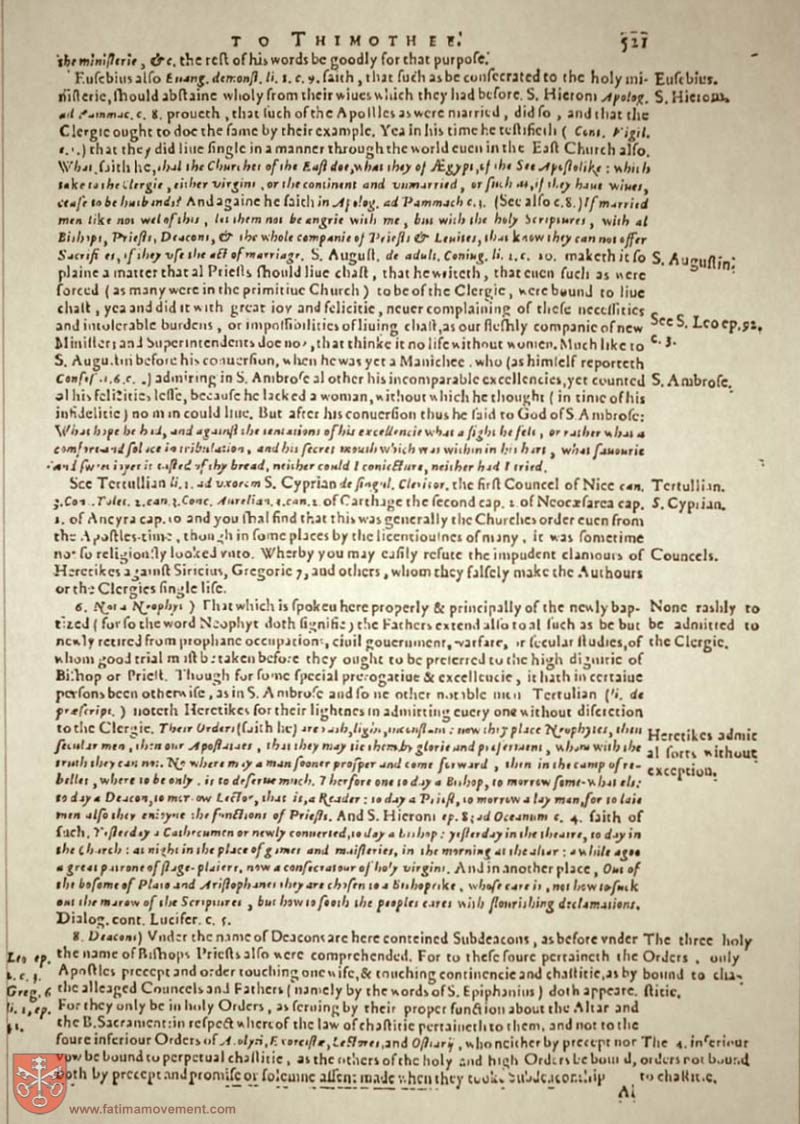 TO THIMOTHEE. 521
the ministerie, &c. the rest of his words be goodly for that purpose.
Eusebius also Euang. demonst. li. 1. c. 9. saith, that such as be consecrated to the holy mi- Eusebius.
nisterie, should abstaine wholy from their wiues which they had before. S. Hierom Apolog. S. Hierom.
ad Pammac. c. 8. proueth, that such of the Apostles as were married, did so, and that the
Clergie ought to doe the same by their example. Yea in his time he testifieth ( Cont. Vigil.
c. 1.) that they did liue single in a manner through the world euen in the East Church also.
What, saith he, shal the Churches of the East doe, what they of Ægypt, of the See Apostolike: which
take to the Clergie, either virgins, or the continent and vnmarried, or such as, if they haue wiues,
cease to be husbands? And againe he saith in Apolog. ad Pammach c. 3. (See also c. 8.) If married
men like not wel of this, let them not be angrie with me, but with the holy Scriptures, with al
Bishops, Priests, Deacons, & the whole companie of Priests & Leuites, that know they can not offer
Sacrifices, if they vse the act of marriage. S. August. de adult. Coniug. li. 2. c. 20. maketh it so S. Augustin:
plaine a matter that al Priests should liue chast, that he writeth, that euen such as were
forced ( as many were in the primitiue Church ) to be of the Clergie, were bound to liue
chast, yea and did it with great ioy and felicitie, neuer complaining of these necessities
and intolerable burdens, or impossibilities of liuing chast, as our fleshly companie of new See S. Leo ep. 92.
Ministers and Superintendents doe now, that thinke it no life without women. Much like to c. 3.
S. Augustin before his conuersion, when he was yet a Manichee. who (as himself reporteth
Confes. li. 6. c. ) admiring in S. Ambrose al other his incomparable excellencies, yet counted S. Ambrose.
al his felicities lesse, because he lacked a woman, without which he thought ( in time of his
infidelitie ) no man could liue. But after his conuersion thus he said to God of S Ambrose:
What hope he had, and against the tentations of his excellencie what a fight he felt, or rather what a
comfort and solace in tribulation, and his secret mouth which was within in his hart, what sauourie
and sweet ioyes it tasted of thy bread, neither could I coniecture, neither had I tried.
See Tertullian li. 1. ad vxorem S. Cyprian de singul. Clericor. the first Councel of Nice can. Tertullian.
3. Con. Tolet. 2. can. 3. Conc. Aurelian. 3. can. 2. of Carthage the second cap. 2. of Neocæsarea cap. S. Cyprian.
1. of Ancyra cap. 10 and you shal find that this was generally the Churches order euen from
the Apostles-time, though in some places by the licentiousnes of many, it was sometime
not so religiously looked vnto. Wherby you may easily refute the impudent clamours of Councels.
Heretikes against Siricius, Gregorie 7, and others, whom they falsely make the Authours
or the Clergies single life.
6. Not a Neophyt ) That which is spoken here properly & principally of the newly bap- None rashly to
tized ( for so the word Neophyt doth signifie ) the Fathers extend also to al such as be but be admitted to
newly retired from prophane occupations, ciuil gouernment, warfare, or secular studies, of the Clergie.
whom good trial must be taken before they ought to be preferred to the high dignitie of
Bishop or Priest. Though for some special prerogatiue & excellencie, it hath in certaine
persons been otherwise, as in S. Ambrose and some other notable men Tertulian (li. de
præscript. ) noteth Heretikes for their lightnes in admitting euery one without discretion
to the Clergie. Their Orders (saith he) are rash, light, inconstant: now they place Neophytes, then Heretikes admit
secular men, then our Apostataes, that they may tie them by glorie and preferment, whom with the al sorts without
truth they can not. No where may a man sooner prosper and come forward, then in the camp of re- exception.
belles, where to be only, is to deserue much. Therfore one to day a Bishop, to morrow some-what els:
to day a Deacon, to morow Lector, that is, a Reader: to day a Priest, to morrow a lay man, for to laie
men also they enioyne the functions of Priests. And S. Hierom ep. 83 ad Oceanum c. 4. saith of
such. Yesterday a Cathecumen or newly conuerted, to day a bishop: yesterday in the theatre, to day in
the Church: at night in the place of games and maisteries, in the morning at the altar: a while agoe
a great patrone of stage-plaiers, now a consecratour of holy virgins. And in another place, Out of
the bosome of Plato and Aristophanes they are chosen to a Bishoprike, whose care is, not how to suck
out the marow of the Scriptures, but how to sooth the peoples eares with flourishing declamations.
Dialog. cont. Lucifer. c. 5.
8. Deacons) Vnder the name of Deacons are here conteined Subdeacons, as before vnder The three holy
Leo ep. the name of Bishops Priests also were comprehended. For to these foure pertaineth the Orders, only
c. 3. Apostles precept and order touching one wife, & touching continencie and chastitie, as by bound to cha-
Greg. the alleaged Councels and Fathers ( namely by the words of S. Epiphanius ) doth appeare. stitie.
li. 1, ep. For they only be in holy Orders, as seruing by their proper function about the Altar and
the B. Sacrament: in respect wherof the law of chastitie pertaineth to them, and not to the
foure inferiour Orders of Acolyti, Exorcistæ, Lectores, and Ostiarij, who neither by precept nor The 4. inferiour
vow be bound to perpetual chastitie, as the others of the holy and high Orders be bound, orders not bound
both by precept and promise or solemne assent made when they tooke Subdeaconship to chastitie.
Al
www.fatimamovement.com